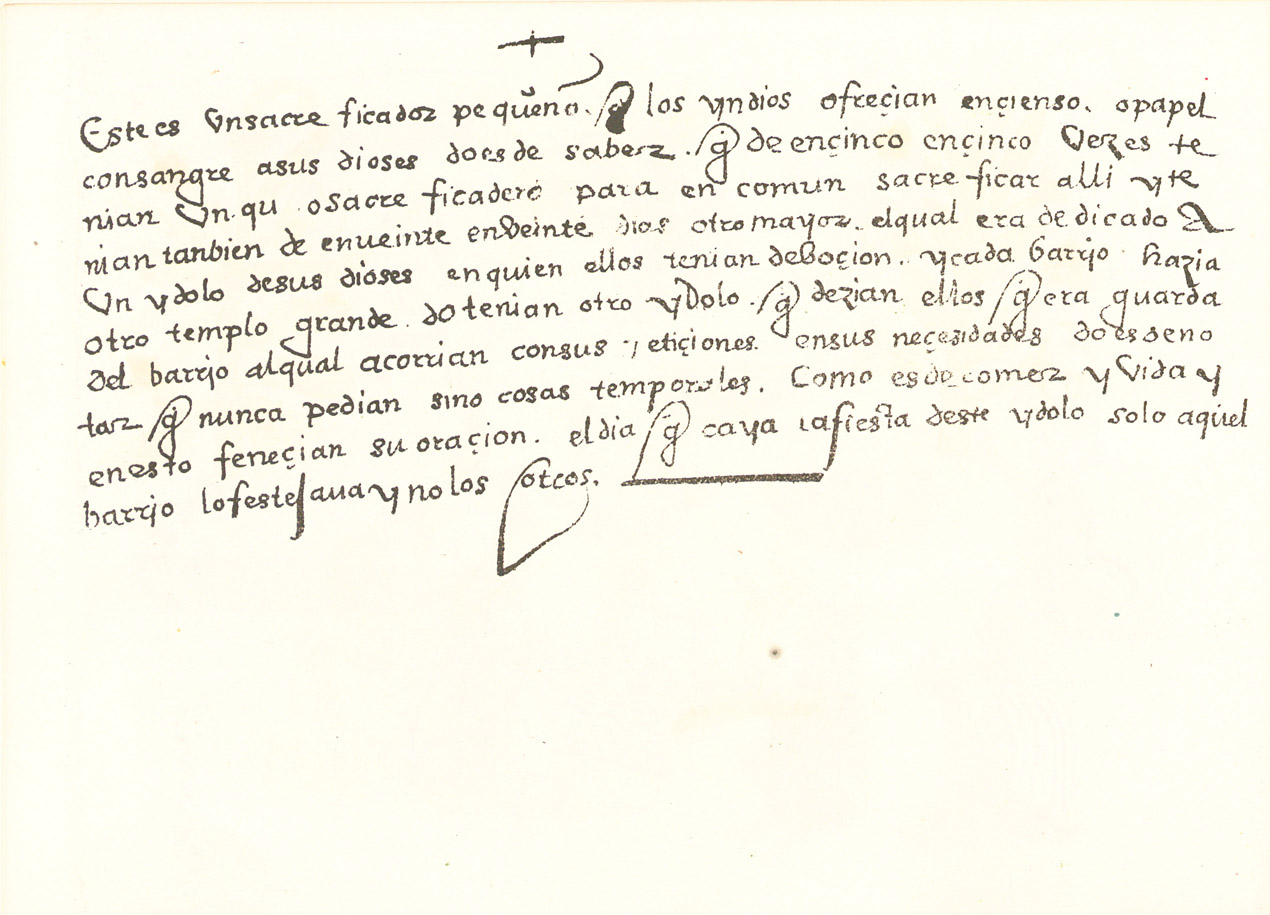 Este es Vn sacre ficador pequeño. q̃ los yndios ofreçian ençienso. o papel
con sangre a sus dioses do es de saber. q̃ de en çinco en çinco Vezes te
nian Vn qu o sacre ficadero para en comun sacre ficar alli y te
nian tanbien de en ueinte en Veinte dias otro mayor. el qual era de dicado A
Vn ydolo de sus dioses en quien ellos tenian deboçion. y cada barrjo hazia
otro templo grande. do tenian otro yDolo. q̃ dezian ellos q̃ era guarda
del barrjo al qual acorrian con sus petiçiones. en sus neçesidades do es de no
tar q̃ nunca pedian sino cosas temporales. Como es de comer y Vida y
en esto feneçian su oraçion. el dia q̃ caya la fiesta deste ydolo solo aquel
barrjo lo festejaua y no los otros.